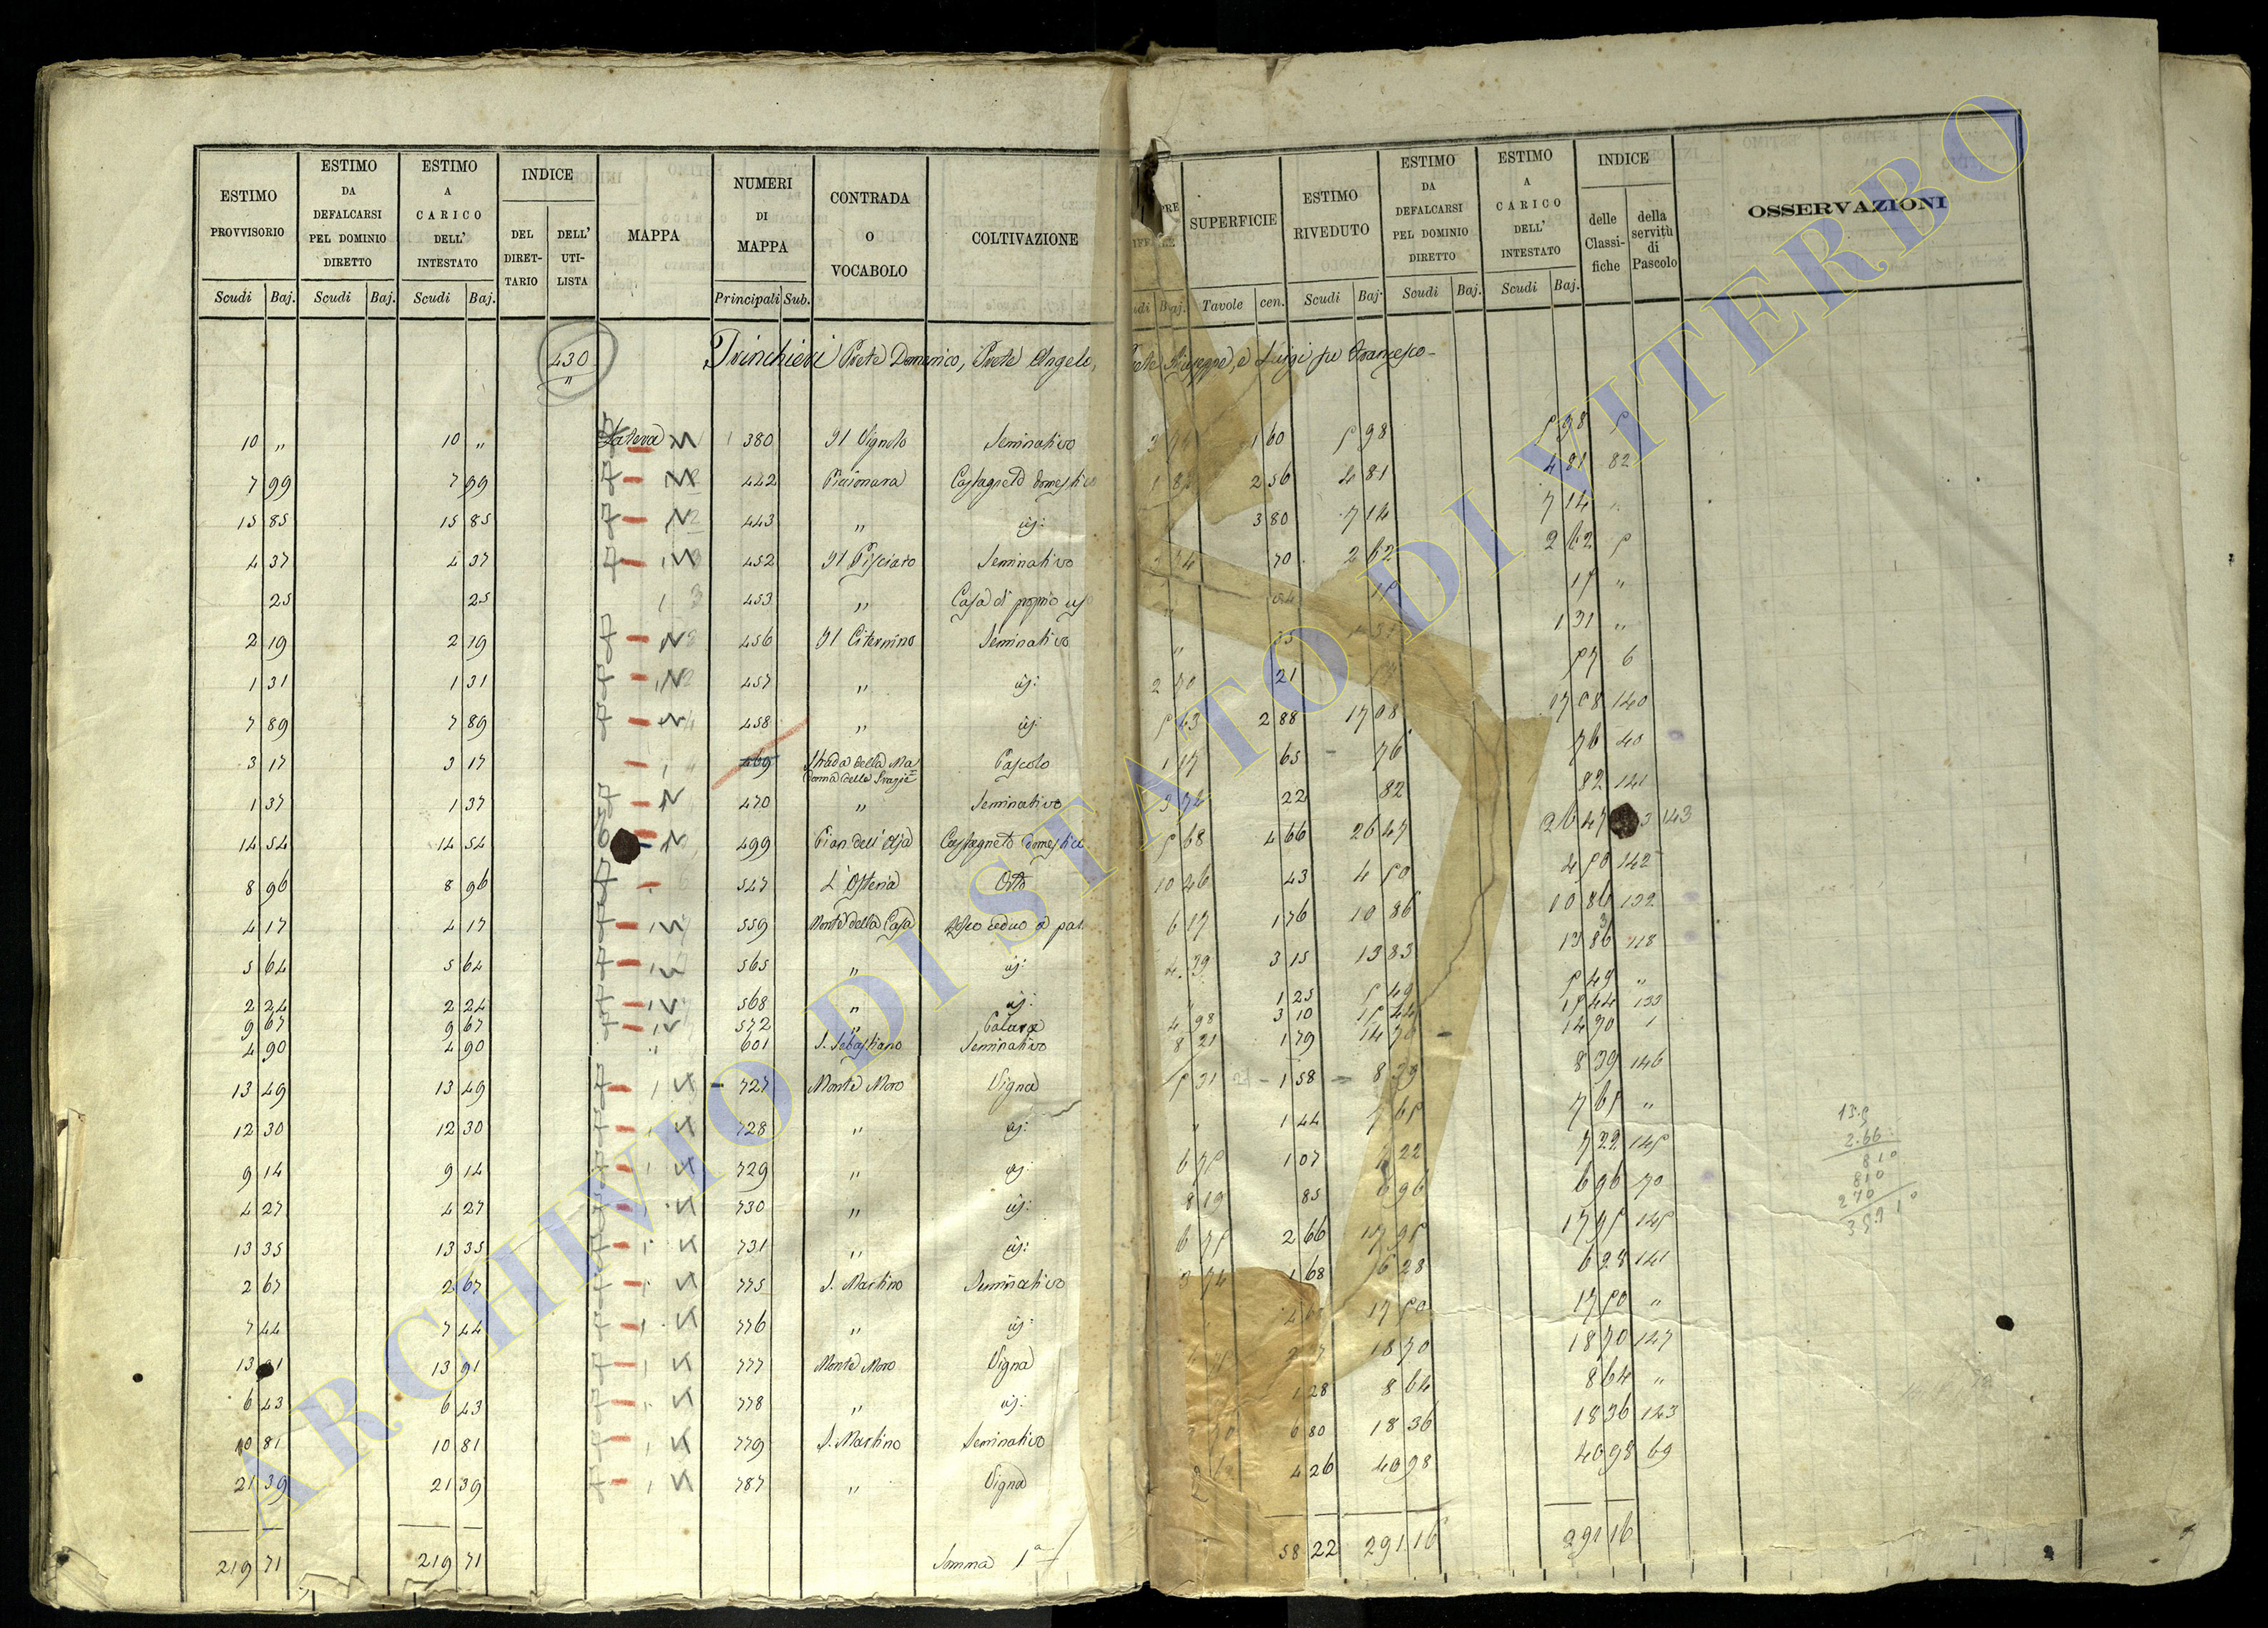 ESTIMO PROVVISORIO | ESTIMO DA DEFALCARSI PEL DOMINIO DIRETTO | ESTIMO A CARICO DELL' INTESTATO | INDICE | MAPPA | NUMERI DI MAPPA | CONTRADA O VOCABOLO | COLTIVAZIONE | SUPERFICIE | ESTIMO RIVEDUTO | ESTIMO DA DEFALCARSI PEL DOMINIO DIRETTO | ESTIMO A CARICO DELL' INTESTATO | INDICE | OSSERVAZIONI
DEL DIRETTARIO | DELL' UTILISTA | delle Classifiche | della servitù di Pascolo
Scudi | Baj. | Scudi | Baj. | Scudi | Baj. | Principali | Sub. | Baj. | Tavole | cen. | Scudi | Baj. | Scudi | Baj. | Scudi | Baj.
430 Trinchieri Prete Domenico, Prete Angelo, Giuseppe, e Luigi fu Francesco
10 " 10 " Latera 380 Il Vignolo Seminativo 1 60 5 98 5 98
7 99 7 99 442 Piccionara Castagneto domestico 2 56 4 81 4 81 82
15 85 15 85 443 " id: 3 80 7 14 7 14 "
4 37 4 37 452 Il Pisciaro Seminativo 70 2 62 2 62 5
25 25 453 " Casa di proprio uso 15 "
2 19 2 19 456 Il Citernino Seminativo 1 31 "
1 31 1 31 457 " id: 2 70 21 57 6
7 89 7 89 458 " id: 5 43 2 88 17 08 17 08 140
3 17 3 17 469 Strada della Madonna delle Grazie Pascolo 1 17 65 76 76 40
1 37 1 37 470 " Seminativo 3 74 22 82 82 141
14 54 14 54 499 Pian dell' Olja Castagneto domestico 5 68 4 66 26 47 26 47 3 143
8 96 8 96 547 L' Osteria Orto 10 46 43 4 50 4 50 142
4 17 4 17 559 Monte della Casa Bosco ceduo a pas. 6 17 1 76 10 86 10 86 132
5 64 5 64 565 " id: 4 39 3 15 13 83 13 83 118
2 24 2 24 568 " id: " 1 25 5 49 5 49 "
9 67 9 67 572 " 4 98 3 10 15 44 15 44 133
4 90 4 90 601 S. Sebastiano Seminativo 8 21 1 79 14 70 14 70 1
13 49 13 49 727 Monte Moro Vigna 5 31 1 58 8 39 8 39 146
12 30 12 30 728 " id: " 1 44 7 65 7 65 "
9 14 9 14 729 " id: 6 75 1 07 7 22 7 22 145
4 27 4 27 730 " id: 8 19 85 6 96 6 96 70
13 35 13 35 731 " id: 6 75 2 66 17 95 17 95 145
2 67 2 67 775 S. Martino Seminativo 3 74 1 68 6 28 6 28 141
7 44 7 44 776 " id: 17 50 17 50 "
13 91 13 91 777 Monte Moro Vigna 18 70 18 70 147
6 43 6 43 778 " id: 1 28 8 64 8 64 "
10 81 10 81 779 S. Martino Seminativo 6 80 18 36 18 36 123
21 39 21 39 787 " Vigna 4 26 40 98 40 98 69
219 71 219 71 Somma 1a 58 22 291 16 291 16
2.66
810
810
270
ARCHIVIO DI STATO DI VITERBO